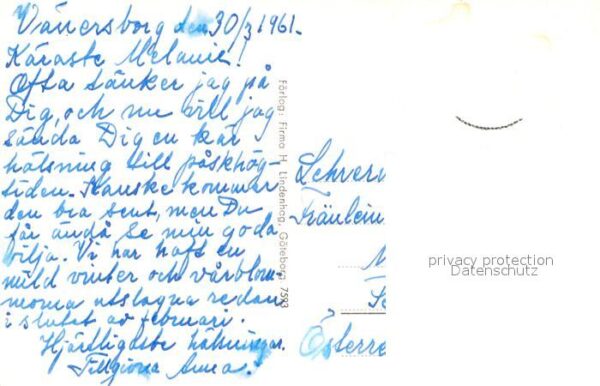 Vänersborg den 30/3 1961.
Käraste Melanie!
Ofta tänker jag på
Dig, och nu vill jag
sända Dig en kär
hälsning till påskhög-
tiden. Kanske kommer
den bra sent, men Du
får ändå se min goda
vilja. Vi har haft en
mild vinter och vårblom-
morna utslagna redan
i slutet av februari.
Hjärtligaste hälsningar
Tillgivna Anna.
Förlag: Firma H. Lindenhag, Göteborg 7593
Fräulein
Österre
privacy protection
Datenschutz